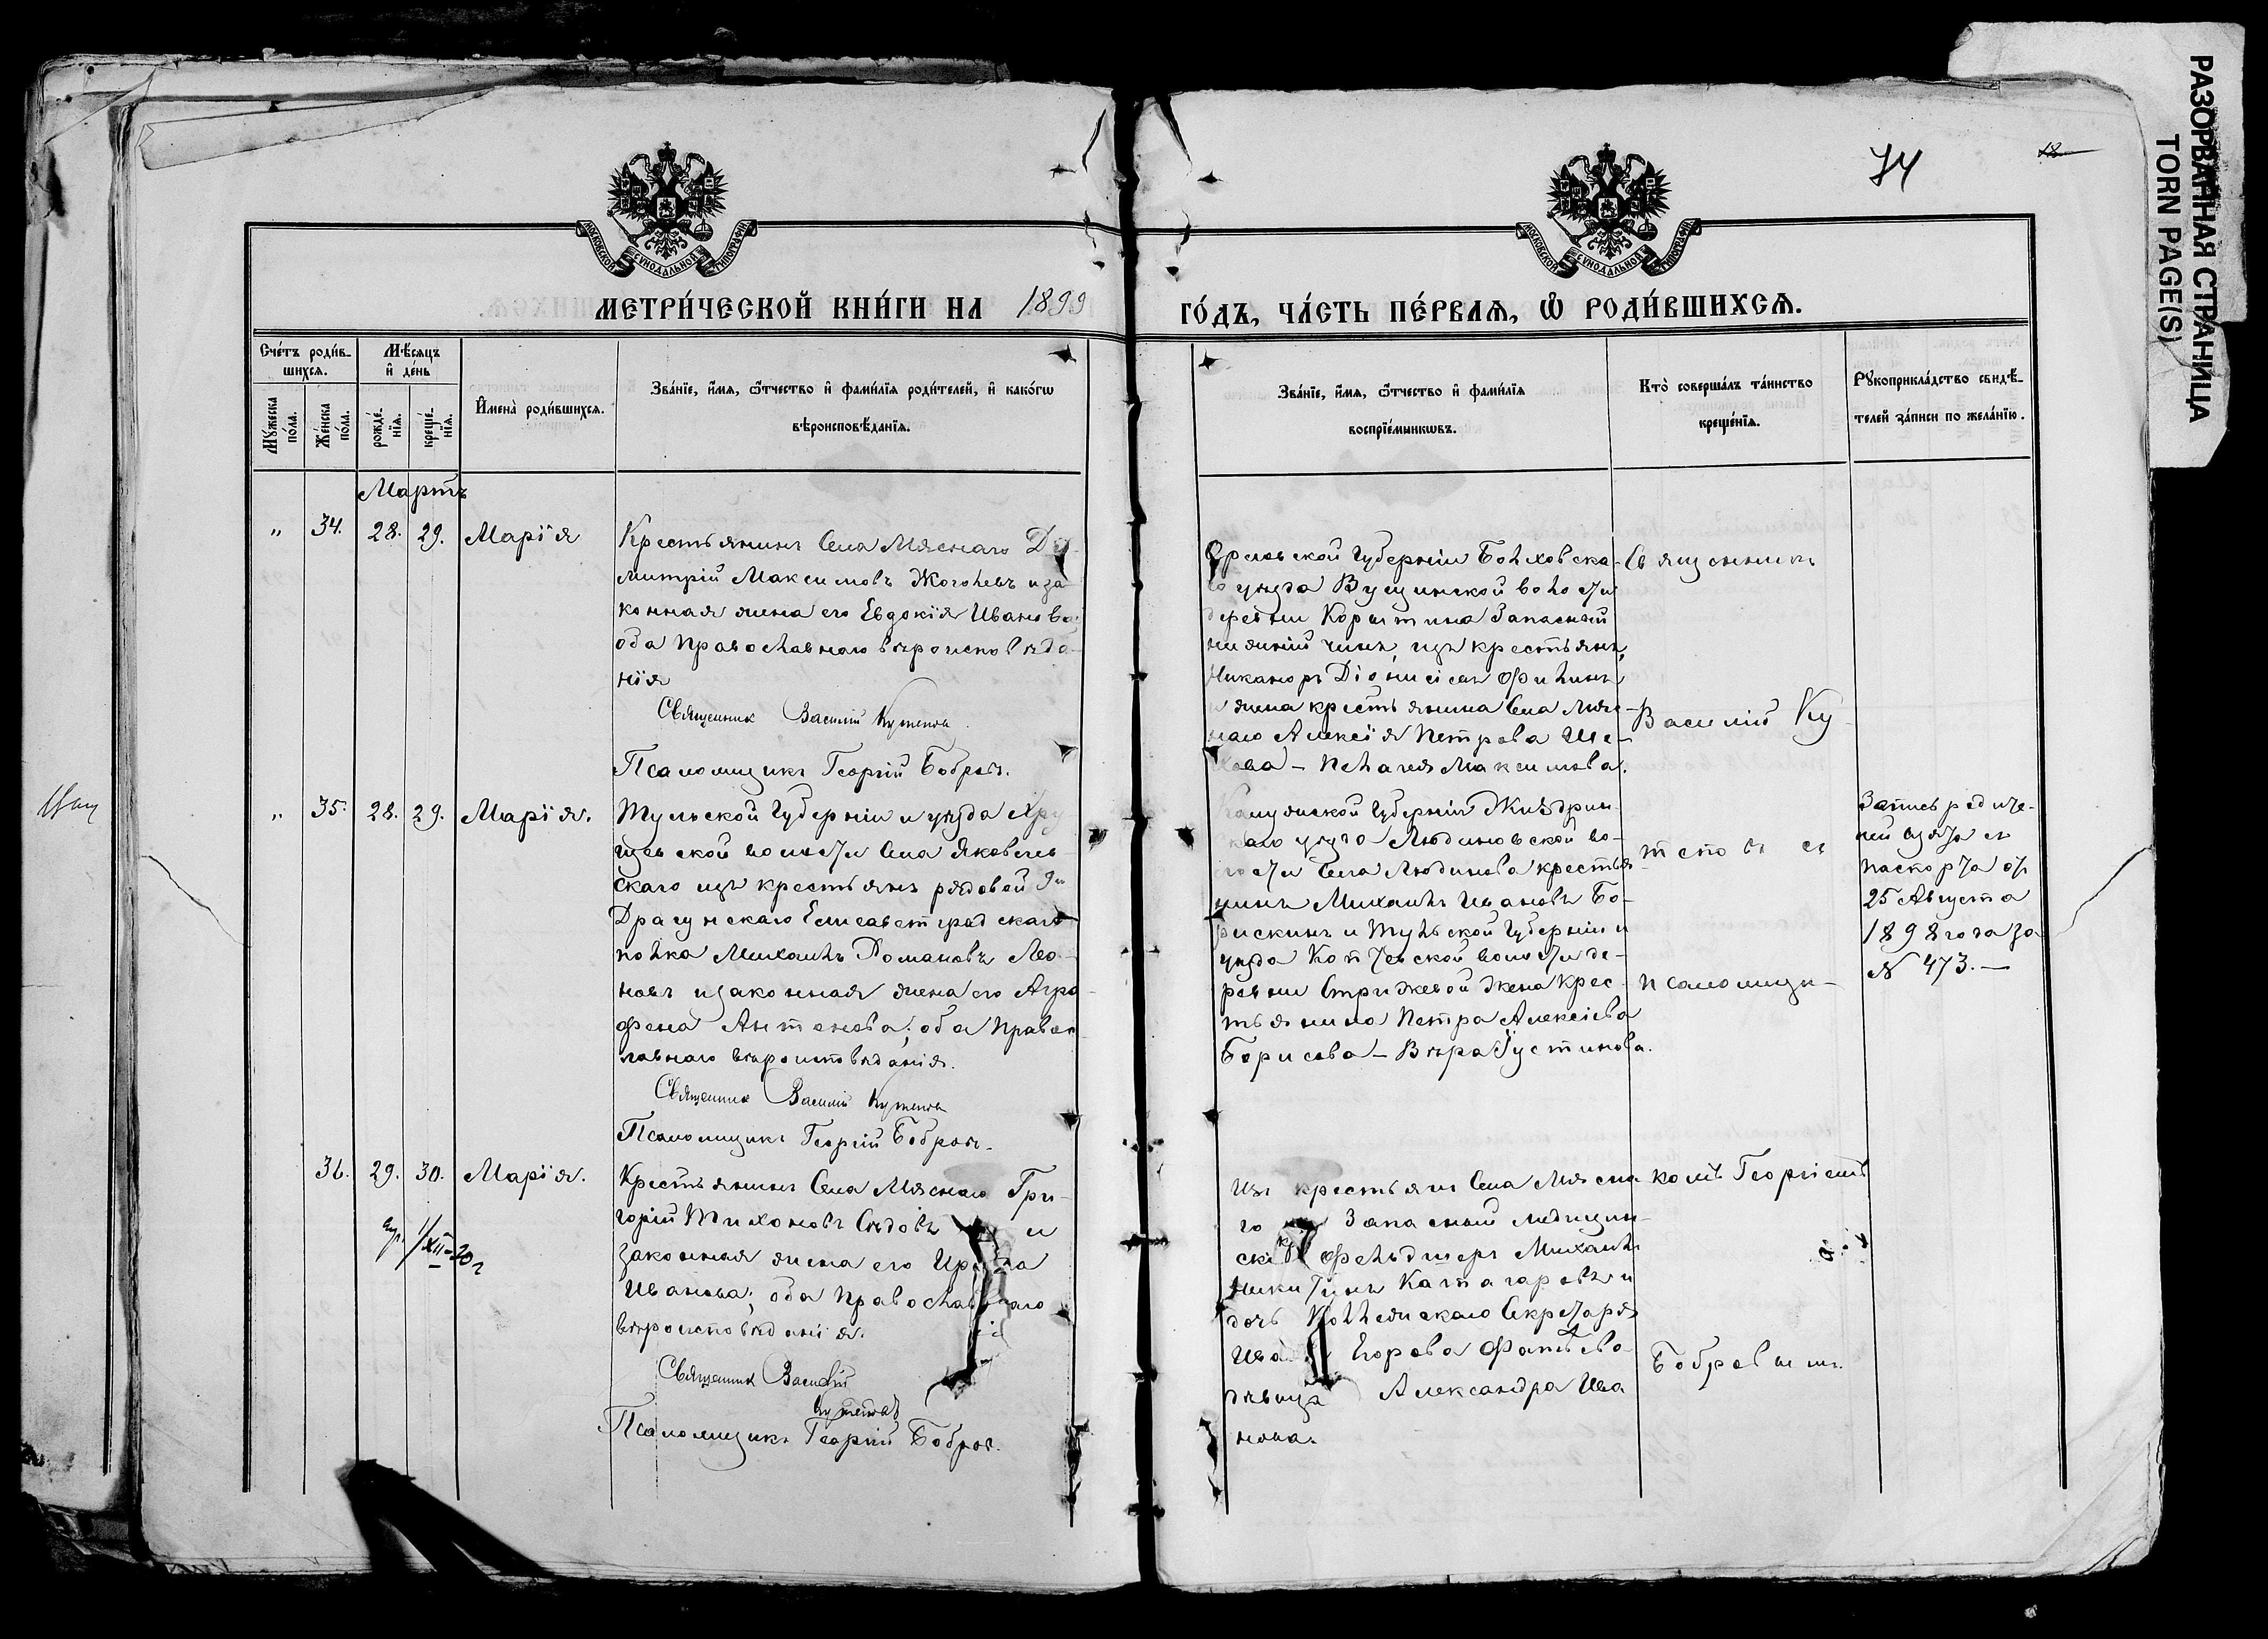 РАЗОРВАННАЯ СТРАНИЦА
TORN PAGE(S)
74
18
МОСКОВСКОЙ СѴНОДАЛЬНОЙ ТИПОГРАФІИ
МОСКОВСКОЙ СѴНОДАЛЬНОЙ ТИПОГРАФІИ
МЕТРИ́ЧЕСКОЙ КНИ́ГИ НА 1899
ГО́ДЪ, ЧА́СТЬ ПЕ́РВАѦ, Ѽ РОДИ́ВШИХСѦ.
Сче́тъ роди́в-
шихсѧ.
Мꙋ́жеска по́ла.
Же́нска по́ла.
Мѣ́сѧцъ
и҆ де́нь
рожде́-нїѧ.
креще́-нїѧ.
И҆мена̀ роди́вшихсѧ.
Зва́нїе, и҆́мѧ, ѻ҆́тчество и҆ фами́лїѧ роди́телей, и҆ како́гѡ
вѣроисповѣ́данїѧ.
Зва́нїе, и҆́мѧ, ѻ҆́тчество и҆ фами́лїѧ
воспрїе́мникѡвъ.
Кто̀ соверша́лъ та́инство
креще́нїѧ.
Рꙋкоприкла́дство свидѣ́-
телей за́писи по жела́нїю.
Мартъ
" 34. 28. 29. Марія
Крестьянинъ села Мяснаго Ди-
митрій Максимовъ Жоголевъ и за
конная жена его Евдокія Иванова
оба православнаго вѣроисповѣда-
нія
Священник Василий Кутепов
Псаломщикъ Георгій Бобровъ.
Орловской губерніи Болховска-
го уѣзда Вущинской волости
деревни Корытина Запасный
нижній чинъ, изъ крестьянъ,
Никаноръ Діонисіевъ Филинъ
и жена крестьянина села Мяс-
наго Алексія Петрова
Пелагея Максимова.
Священникъ
Василій Ку-
теповъ съ
псаломщи-
комъ Георгіемъ
Бобровымъ.
" 35. 28. 29. Марія.
Тульской губерніи и уѣзда Хру
щевской волости села Яковлев
скаго изъ крестьянъ рядовой
Драгунскаго Елисаветградскаго
полка Михаилъ Романовъ Лео-
новъ и законная жена его Агра
фена Антонова; оба правос
лавнаго вѣроисповѣданія.
Священник Василий Кутепов
Псаломщикъ Георгій Бобровъ.
Калужской губерніи Жиздрин-
скаго уѣзда Людиновской во-
лости села Людинова крестья
нинъ Михаилъ Ивановъ Бо-
рискинъ и Тульской губерніи и
уѣзда волости де-
ревни Стрижевой жена крес-
тьянина Петра Алексіева
Борисова – Вѣра Іустинова.
Запись родите-
лей взята съ
паспорта отъ
25 Августа
1898 года за
№ 473. —
36. 29. 30. Марія.
1/XII-20 г
Крестьянинъ села Мяснаго Гри-
горій Тихоновъ Сѣдовъ и
законная жена его Ирина
Иванова; оба православнаго
вѣроисповѣданія.
Священник Василий
Кутепов
Псаломщикъ Георгій Бобровъ.
Изъ крестьян села Мясна
го Запасный медицин-
скій фельдшеръ Михаилъ
Никитинъ и
дочь Коллежскаго Секретаря
Егорова
дѣвица Александра Ива
нова.